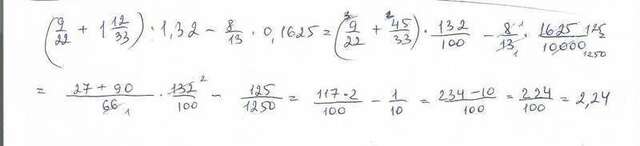 (9/22 + 1 12/33) · 1,32 - 8/13 · 0,1625 = (9/22 ³ + 45/33 ²) · 132/100 - 8/13 ¹ ₁ · 1625/10000 125 1250
= 27+90/66 ₁ · 132/100 ² - 125/1250 = 117·2/100 - 1/10 = 234-10/100 = 224/100 = 2,24